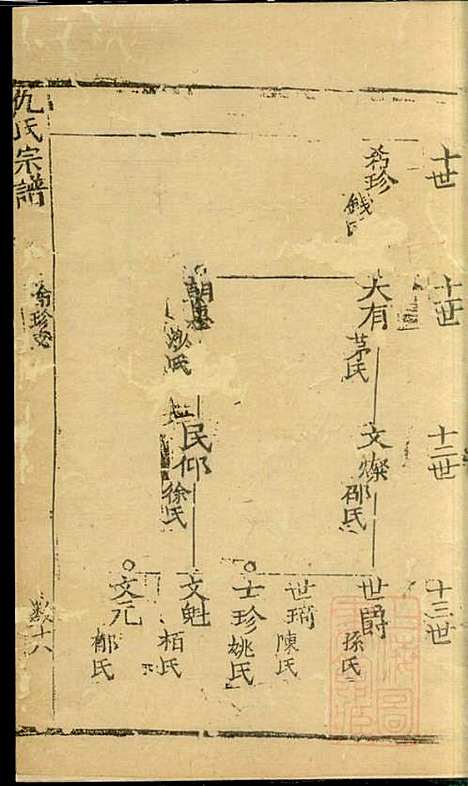 仇氏宗譜
十世
希珍
錢氏
十一世
大有
茅氏
十二世
文燦
邵氏
民仰
徐氏
十三世
世爵
孫氏
陳氏
士珍
姚氏
文魁
柏氏
文元
郁氏
希珍